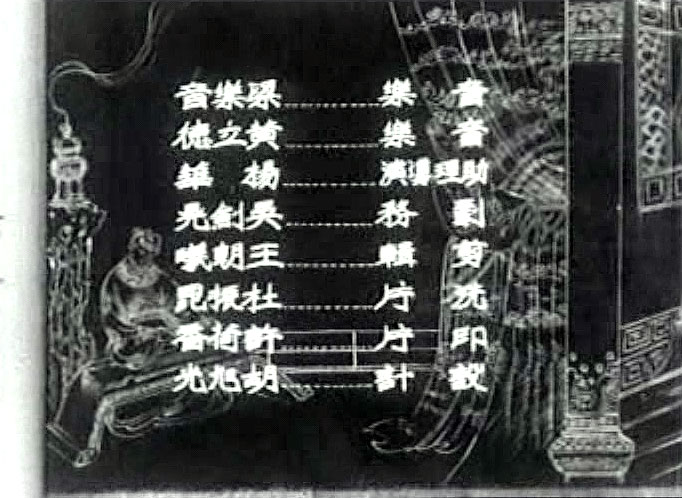 音樂......梁樂音
音樂......黃立德
助理導演......楊
劇務......吳劍
剪輯......王朝曦
洗片......杜振
印片......許荷香
設計......胡旭光